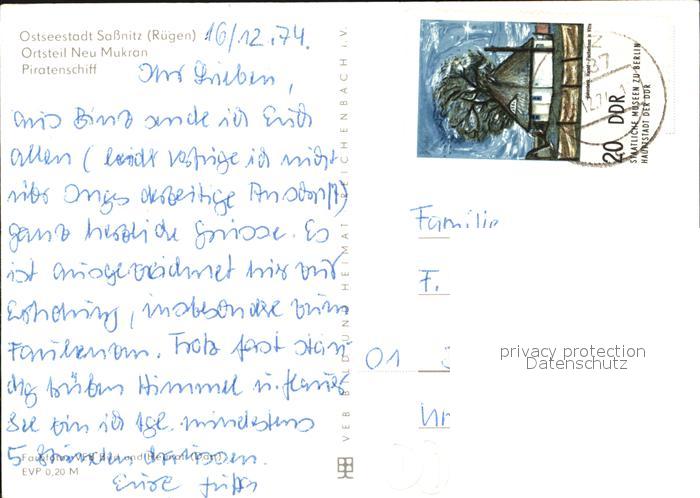 Ostseestadt Saßnitz (Rügen)
Ortsteil Neu Mukran
Piratenschiff
16/12.74.
Ihr Lieben,
aus Binz sende ich Euch
allen (leider verfüge ich nicht
über derzeitige
ganz herzliche Grüsse. Es
ist ausgezeichnet hier zur
Erholung, insbesondere zum
Faulenzen. Trotz fast stän-
dig trüben Himmel u.
See bin ich tgl. mindestens
5 Stunden draussen.
Eure
EVP 0,20 M
VEB BILD UND HEIMAT REICHENBACH i.V.
20 DDR
STAATLICHE MUSEEN ZU BERLIN
HAUPTSTADT DER DDR
Familie
F.
01
privacy protection
Datenschutz